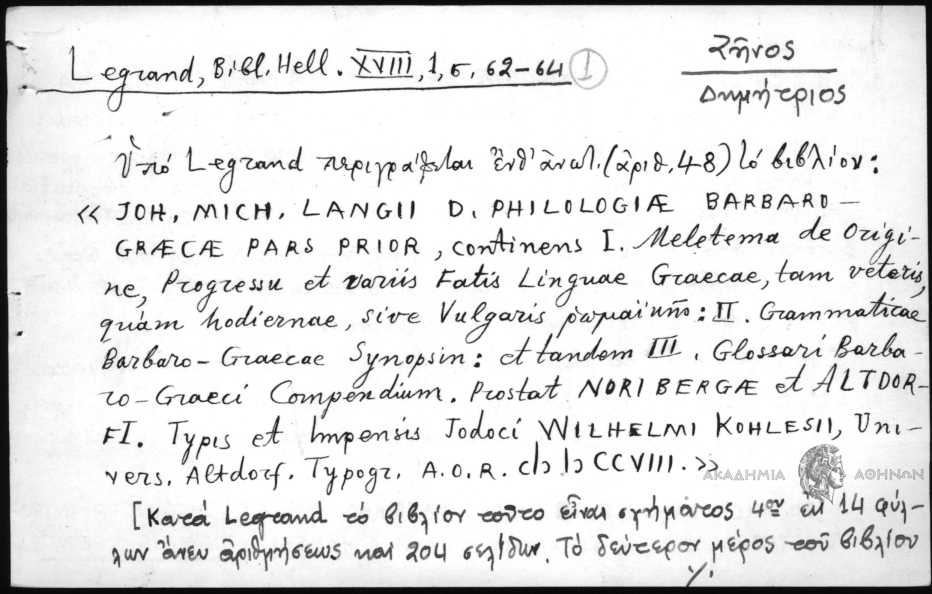 Legrand, Bibl. Hell. XVIII, 1, σ. 62–64 ①
Ζῆνος
Δημήτριος
Ὑπό Legrand περιγράφεται ἐνθ' ἀνωτ. (ἀριθ. 48) τό βιβλίον:
« JOH. MICH. LANGII D. PHILOLOGIÆ BARBARO –
GRÆCÆ PARS PRIOR, continens I. Meletema de Origi-
ne, Progressu et variis Fatis Linguae Graecae, tam veteris,
quám hodiernae, sive Vulgaris ῥωμαϊκῆς: II. Grammaticae
Barbaro-Graecae Synopsin: et tandem III. Glossari Barba-
ro-Graeci Compendium. Prostat NORIBERGÆ et ALTDOR-
FI. Typis et Impensis Jodoci WILHELMI KOHLESII, Uni-
vers. Altdorf. Typogr. A.O.R. cIↃ IↃ CCVIII. »
ΑΚΑΔΗΜΙΑ ΑΘΗΝΩΝ
[Κατά Legrand τό βιβλίον τοῦτο εἶναι σχήματος 4ον ἐκ 14 φύλ-
λων ἄνευ ἀριθμήσεως καί 204 σελίδων. Τό δεύτερον μέρος τοῦ βιβλίου
%.